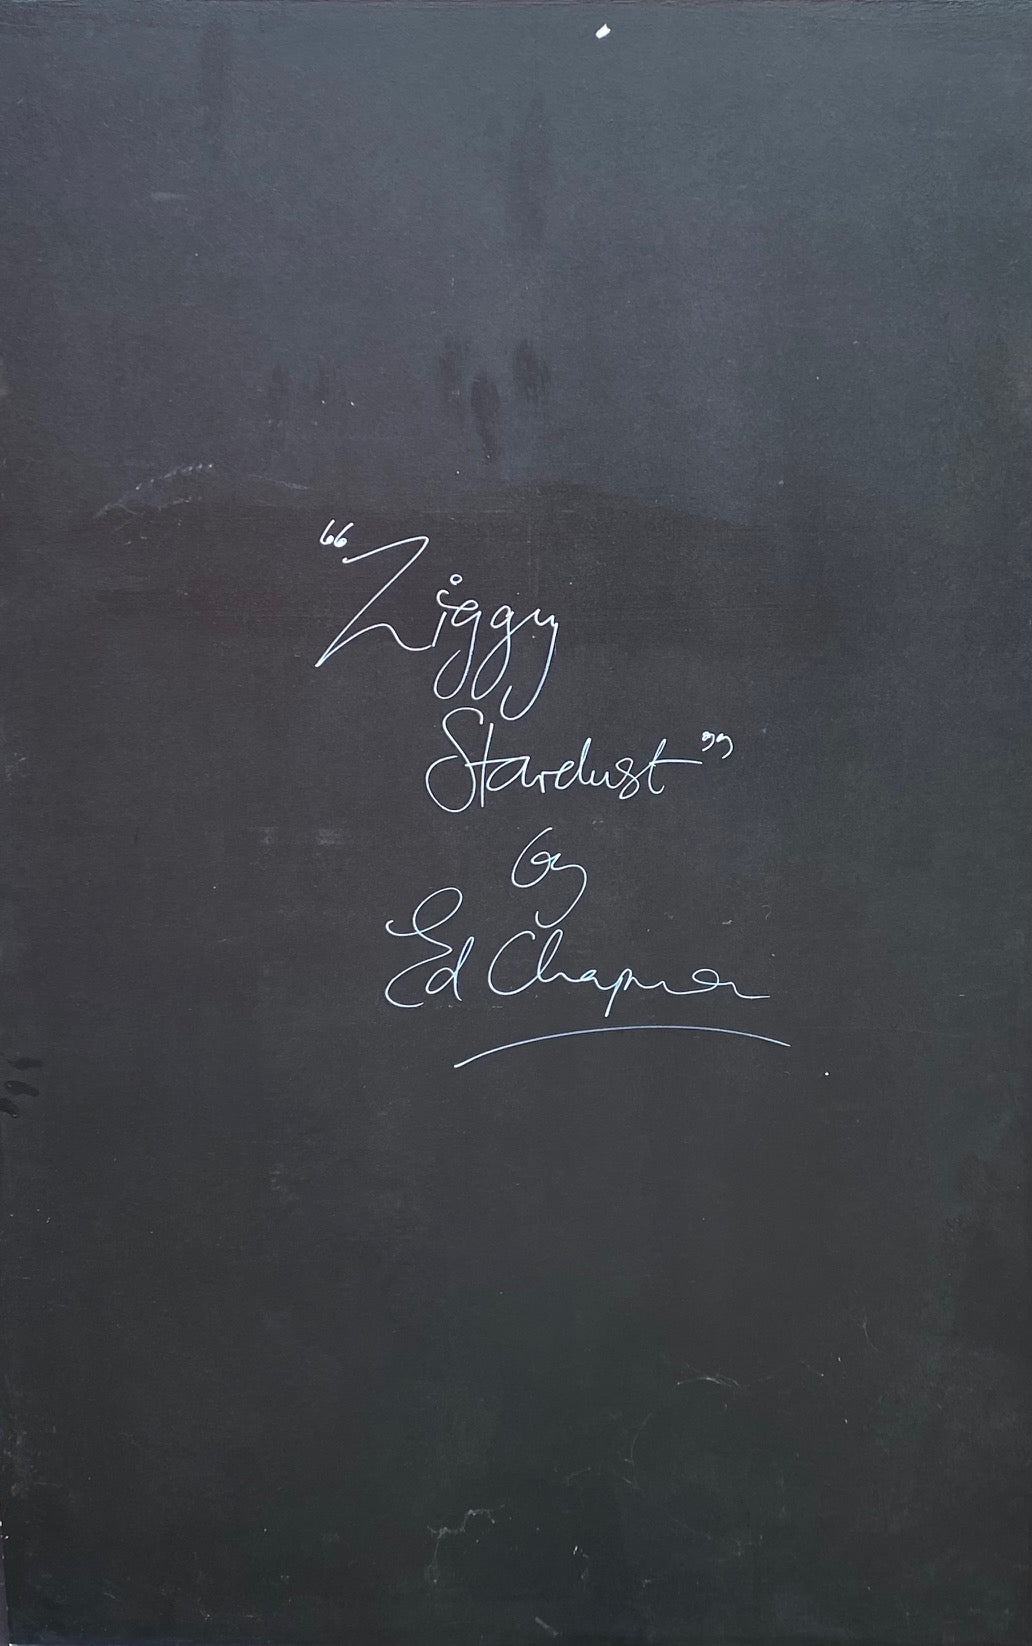 “Ziggy
Stardust”
by
Ed Chapman